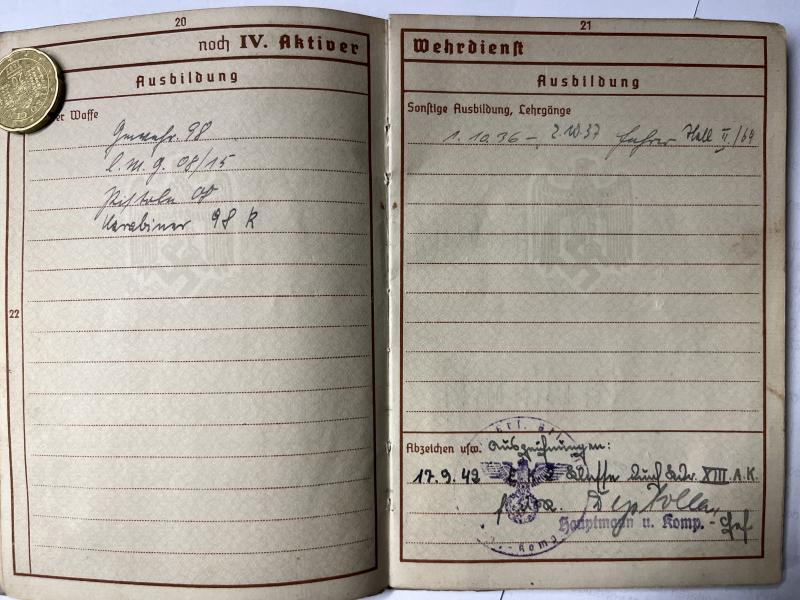 20
noch IV. Aktiver
Ausbildung
er Waffe
Gewehr 98
l. M. G. 08/15
Pistole 08
Karabiner 98 K
22
21
Wehrdienst
Ausbildung
Sonstige Ausbildung, Lehrgänge
1. 10. 36 - 2. 10. 37
Abzeichen usw. Auszeichnungen:
17. 9. 42 Klasse XIII. A. K.
Hauptmann u. Komp. - Chef